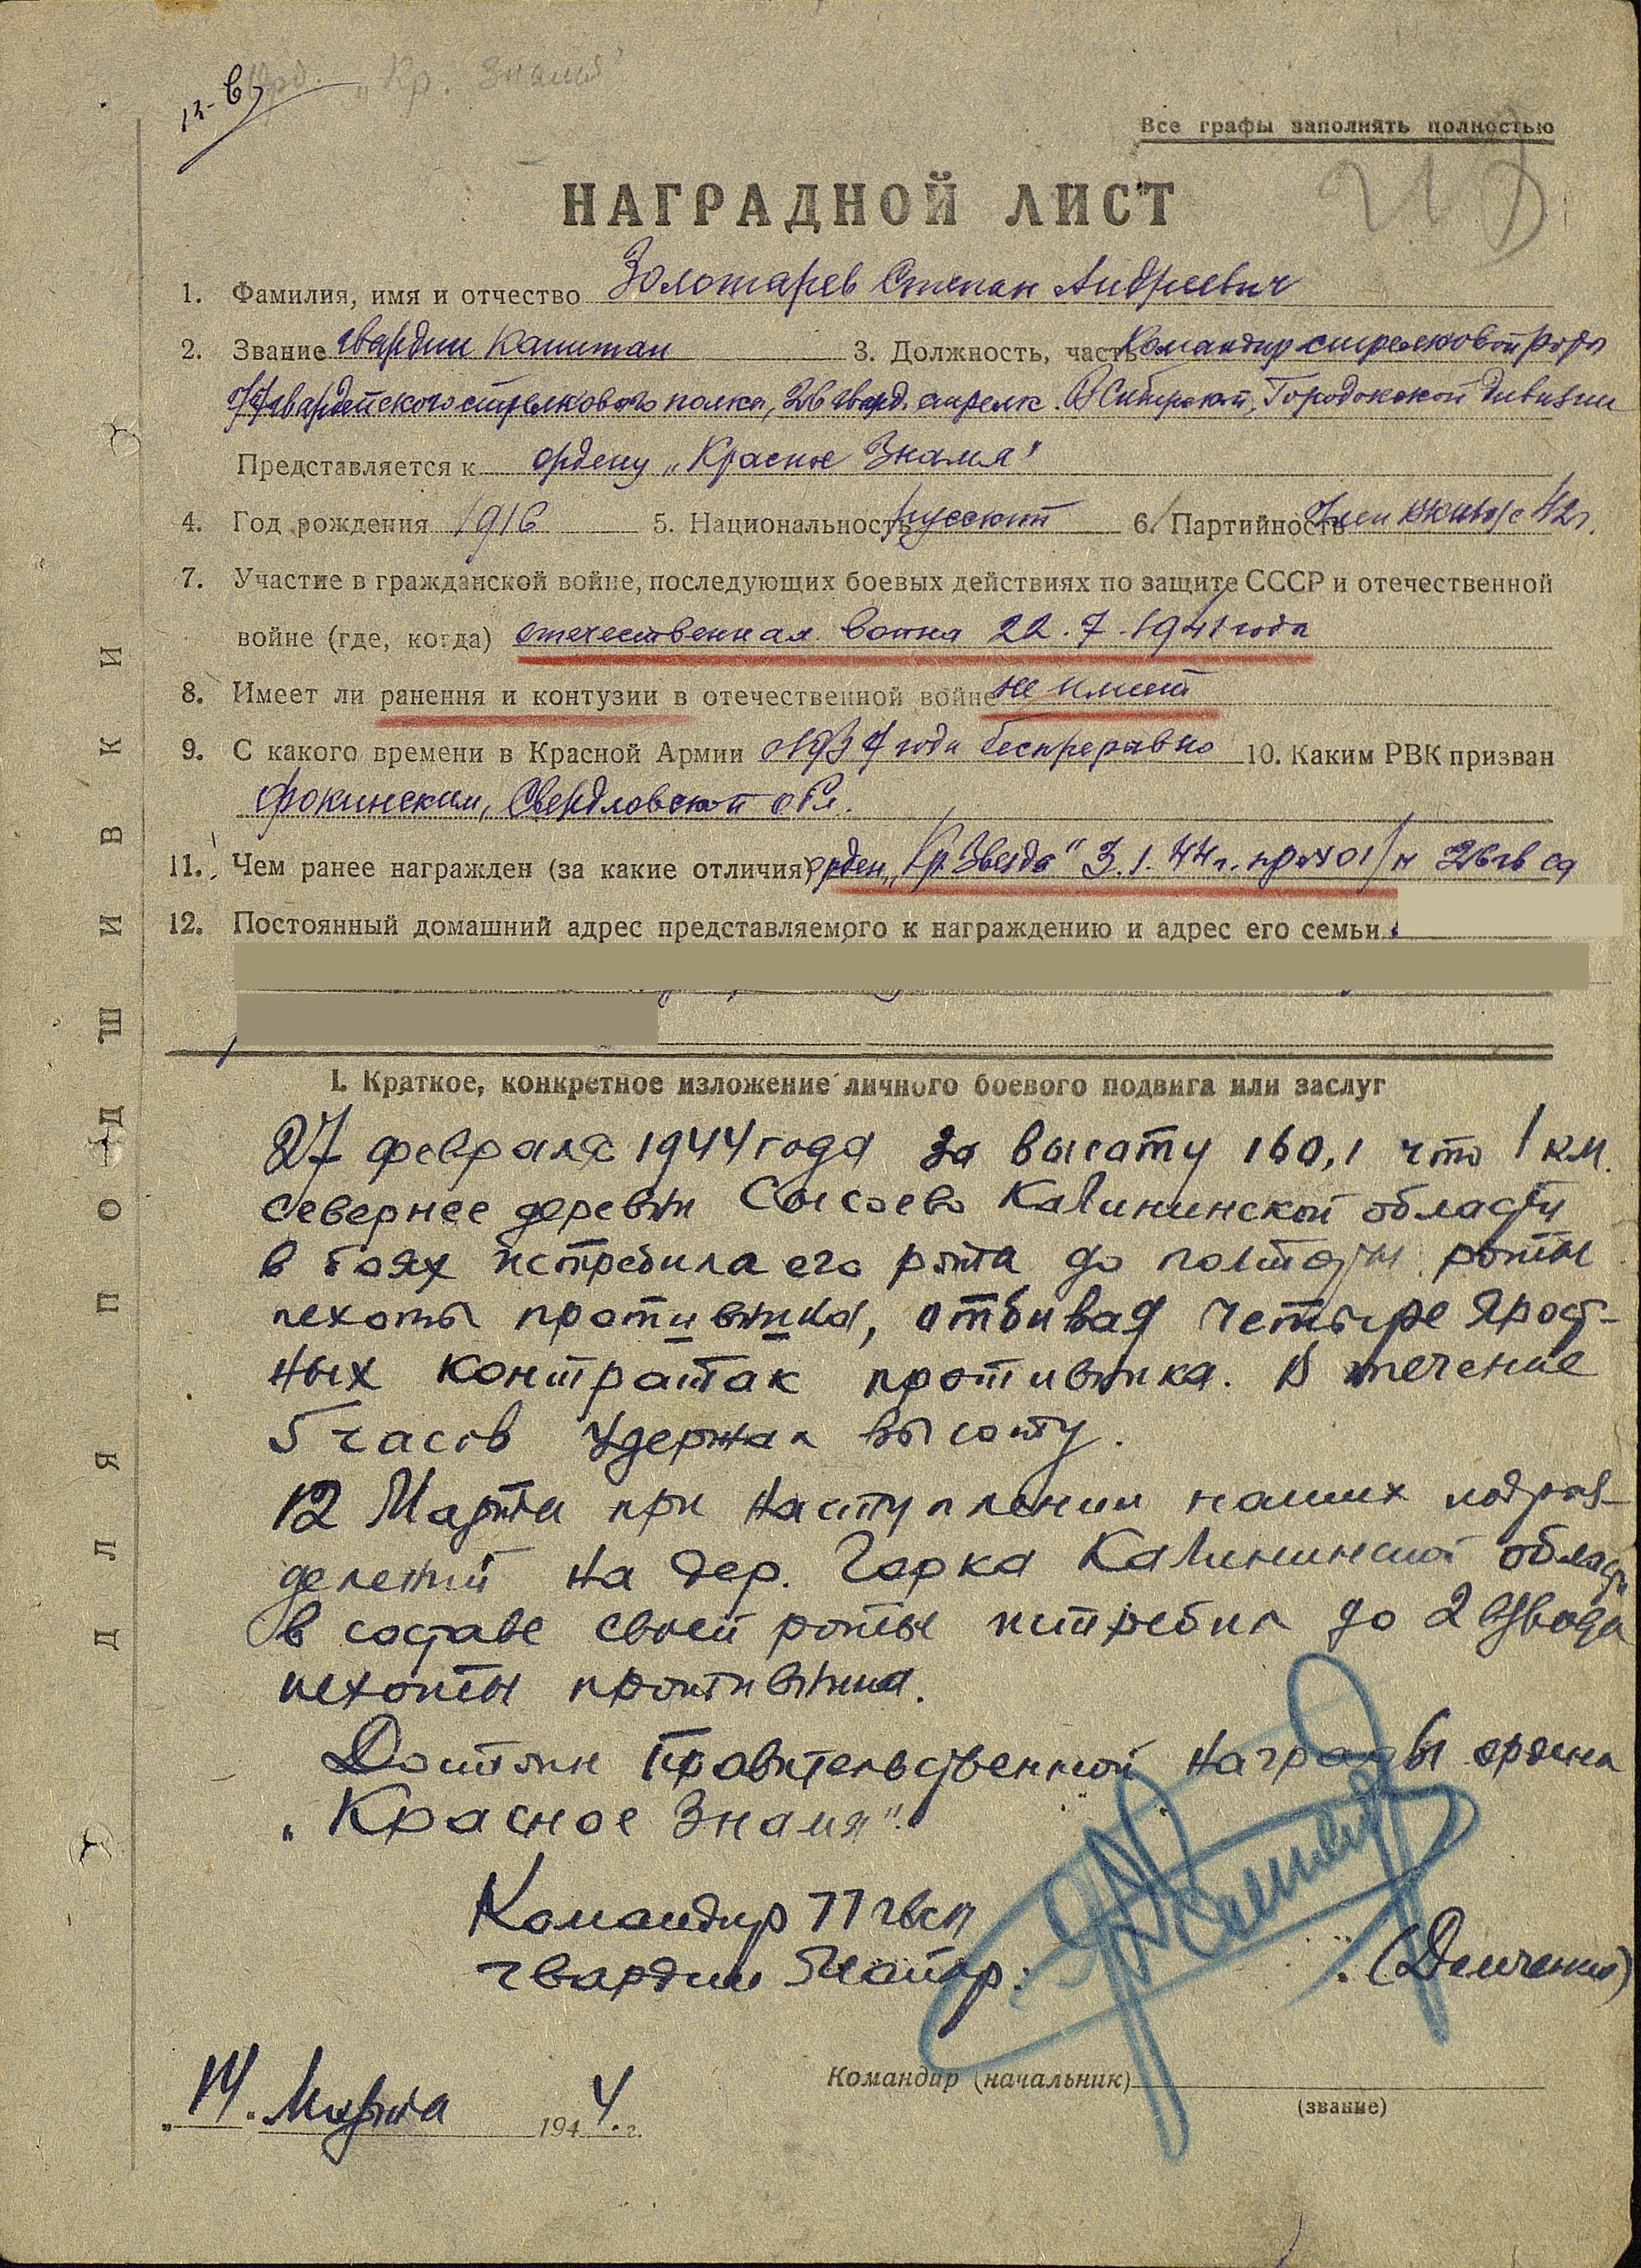 Орд. „Кр. Знамя"
Все графы заполнять полностью
НАГРАДНОЙ ЛИСТ
1. Фамилия, имя и отчество Золотарев Степан Андреевич
2. Звание гвардии капитан 3. Должность, часть Командир стрелковой роты
77 гвардейского стрелкового полка, 26 гвард. стрелк. В Сибирской, Городокской дивизии
Представляется к ордену „Красное Знамя"
4. Год рождения 1916 5. Национальность русский 6. Партийность Член ВКП(б) с 42 г.
7. Участие в гражданской войне, последующих боевых действиях по защите СССР и отечественной
войне (где, когда) отечественная война 22.7.1941 года
8. Имеет ли ранения и контузии в отечественной войне не имеет
9. С какого времени в Красной Армии с 1937 года беспрерывно 10. Каким РВК призван
Фокинским, Свердловской обл.
11. Чем ранее награжден (за какие отличия) орден „Кр. Звезда" 3.1.44 г. пр. № 01/н 26 гв сд
12. Постоянный домашний адрес представляемого к награждению и адрес его семьи
I. Краткое, конкретное изложение личного боевого подвига или заслуг
27 февраля 1944 года за высоту 160,1 что 1 км.
севернее деревни Сысоево Калининской области
в боях истребила его рота до полторы роты
пехоты противника, отбивая четыре ярост-
ных контратак противника. В течение
5 часов удержал высоту.
12 Марта при наступлении наших подраз-
делений на дер. Горка Калининской области
в составе своей роты истребил до 2 взвода
пехоты противника.
Достоин Правительственной награды ордена
„Красное Знамя".
Командир 77 гвсп
гвардии Майор: (Демченко)
Командир (начальник)
(звание)
„14" Марта 1944 г.
ДЛЯ ПОДШИВКИ